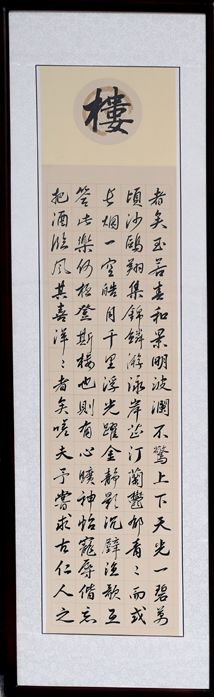 樓
者矣至若春和景明波瀾不驚上下天光一碧萬
頃沙鷗翔集錦鱗游泳岸芷汀蘭鬱郁青〻而或
長烟一空皓月千里浮光躍金静影沉璧漁歌互
答此樂何極登斯樓也則有心曠神怡寵辱偕忘
把酒臨風其喜洋〻者矣嗟夫予嘗求古仁人之